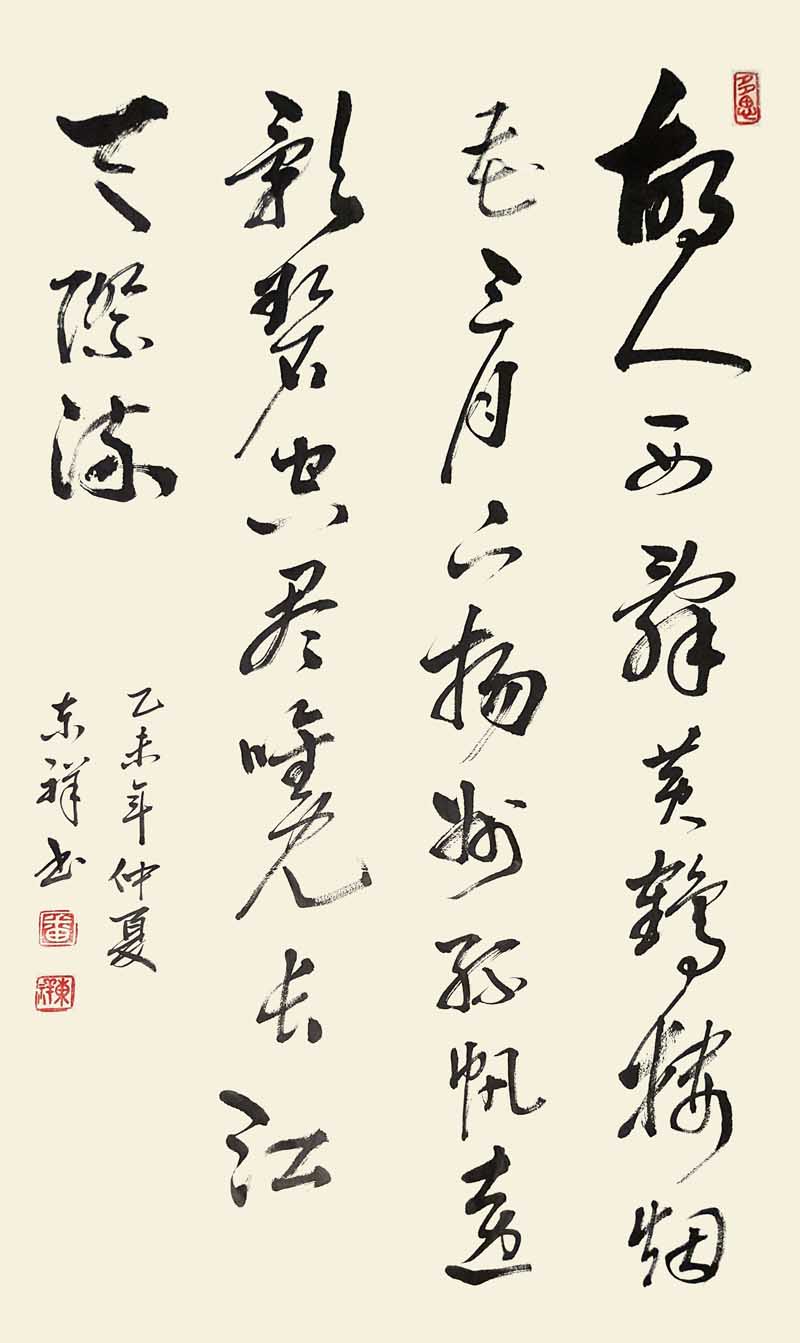 故人西辞黄鹤楼烟
花三月下扬州孤帆远
影碧空尽唯见长江
天际流
乙未年仲夏
东祥书